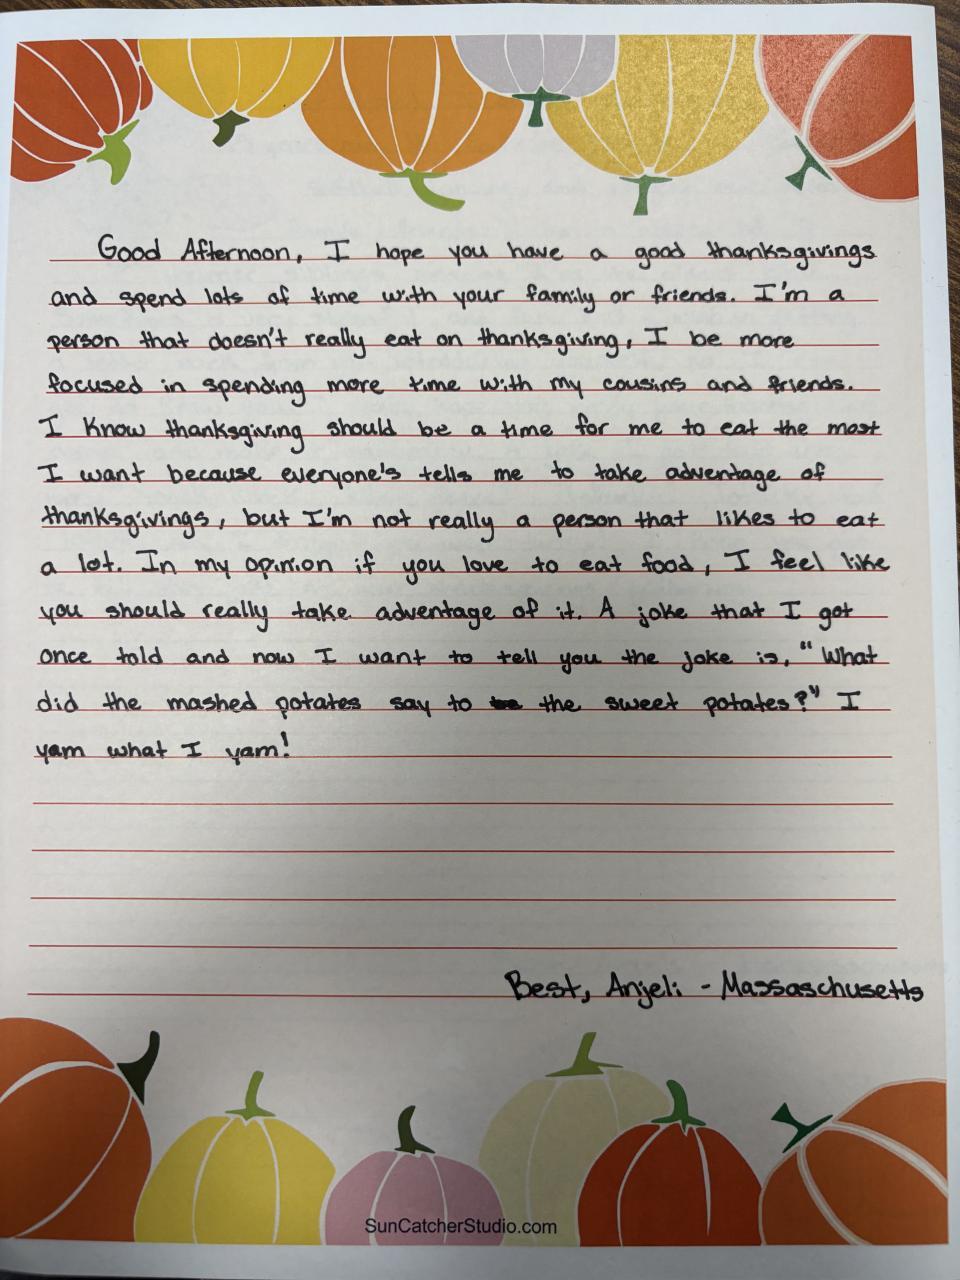 Good Afternoon, I hope you have a good thanksgivings
and spend lots of time with your family or friends. I'm a
person that doesn't really eat on thanksgiving, I be more
focused in spending more time with my cousins and friends.
I know thanksgiving should be a time for me to eat the most
I want because everyone's tells me to take advantage of
thanksgivings, but I'm not really a person that likes to eat
a lot. In my opinion if you love to eat food, I feel like
you should really take advantage of it. A joke that I got
once told and now I want to tell you the joke is, "What
did the mashed potates say to the sweet potates?" I
yam what I yam!
Best, Anjeli - Massaschusetts
SunCatcherStudio.com